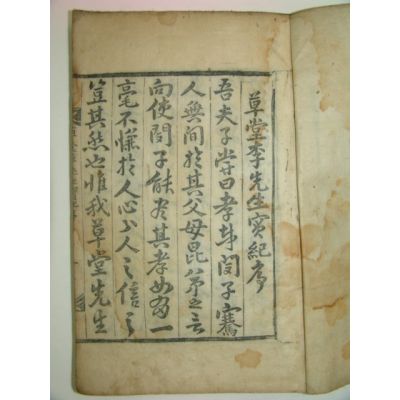 草堂李先生實紀序
吾夫子嘗曰孝哉閔子騫
人無間於其父母昆弟之言
向使閔子能盡其孝如有一
毫不慊於人心人之信之
豈其然也惟我草堂先生